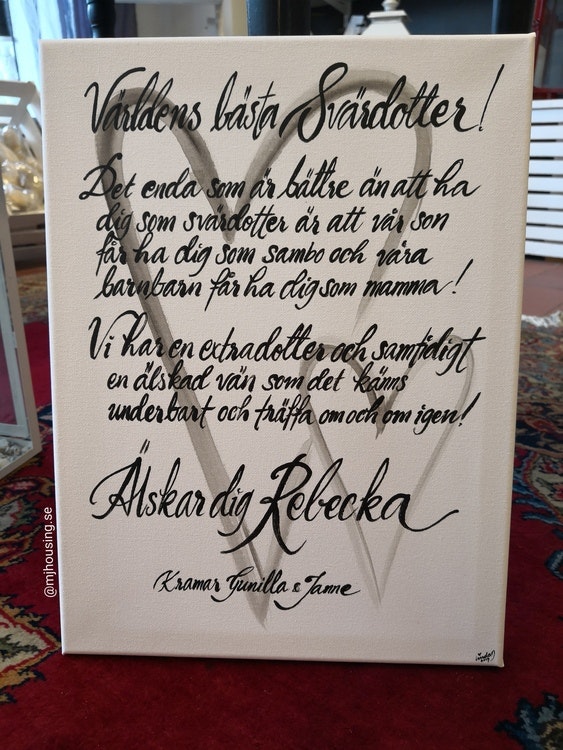 Världens bästa Svärdotter!
Det enda som är bättre än att ha
dig som svärdotter är att vår son
får ha dig som sambo och våra
barnbarn får ha dig som mamma!
Vi har en extradotter och samtidigt
en älskad vän som det känns
underbart och träffa om och om igen!
Älskar dig Rebecka
Kramar Gunilla & Janne
@mjhousing.se